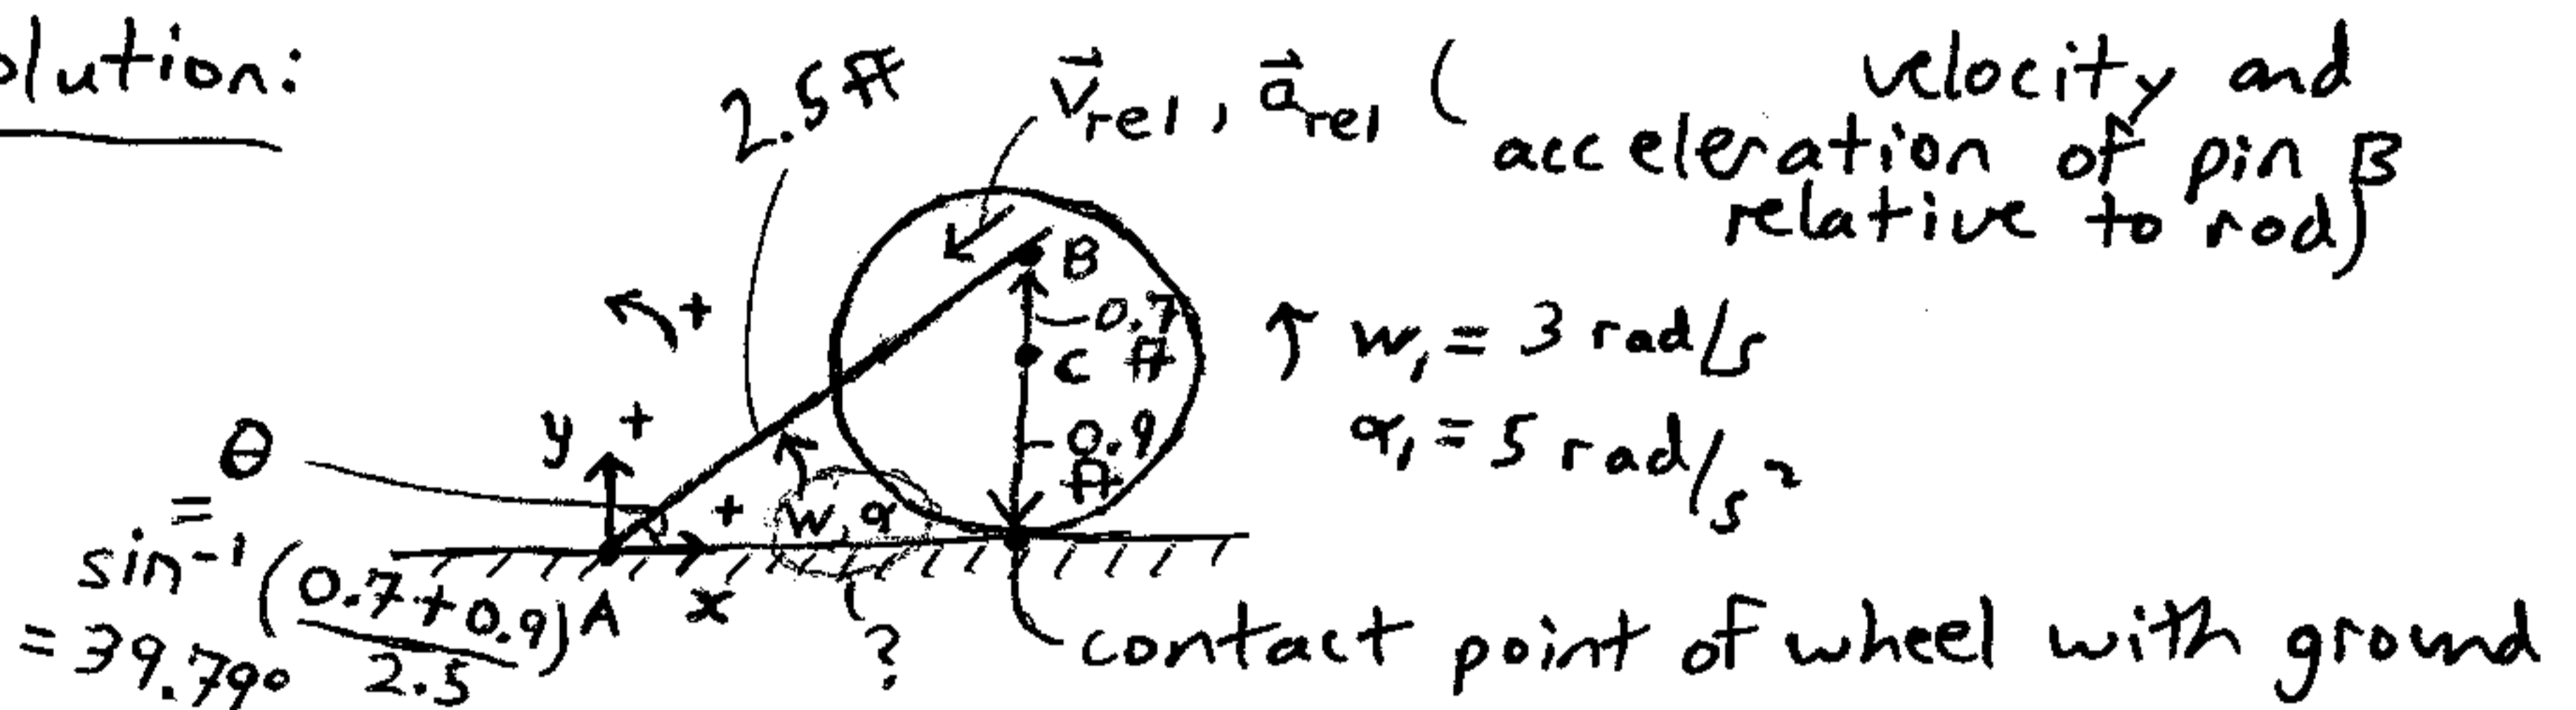 olution:
2.5 ft
v⃗rel, a⃗rel ( velocity and
acceleration of pin B
relative to rod)
B
+
0.7
ft
C
ω₁ = 3 rad/s
α₁ = 5 rad/s²
0.9
ft
y +
θ
=
sin⁻¹(0.7+0.9/2.5)
= 39.79°
+
ω, α
A
x
?
contact point of wheel with ground